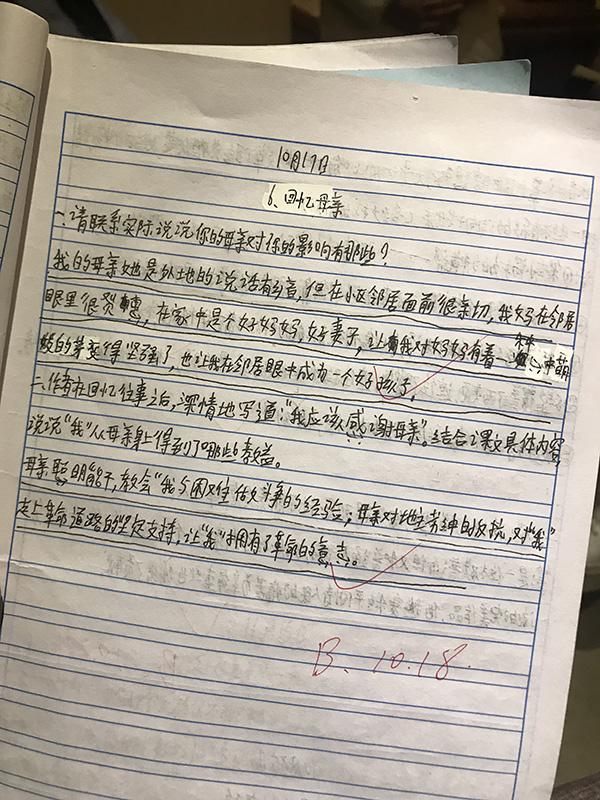 10月17日
6、回忆母亲
一、请联系实际说说你的母亲对你的影响有哪些?
我的母亲她是外地的说话有乡音,但在小区邻居面前很亲切,我妈在邻居
眼里很贤惠,在家中是个好妈妈,好妻子,让我对妈妈有着一
的变得坚强了,也让我在邻居眼中成为一个好孩子。
二、作者在回忆往事之后,深情地写道:“我应该感谢母亲”。结合课文具体内容,
说说“我”从母亲身上得到了哪些教益。
母亲聪明能干,教会“我与困难作斗争的经验;母亲对地主老绅的反抗,对“我”
走上革命道路的坚定支持,让“我”拥有了革命的意志。
B. 10.18.